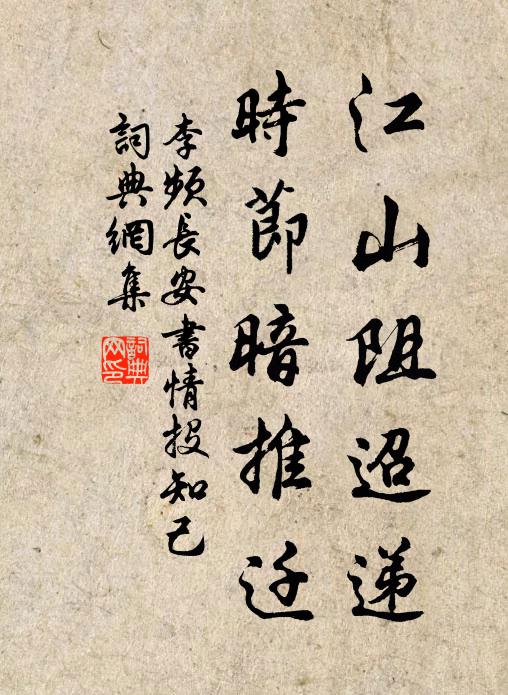 江山阻迢递
時節暗推迁
李頻長安書情投知己
詞典網集
詞典網印